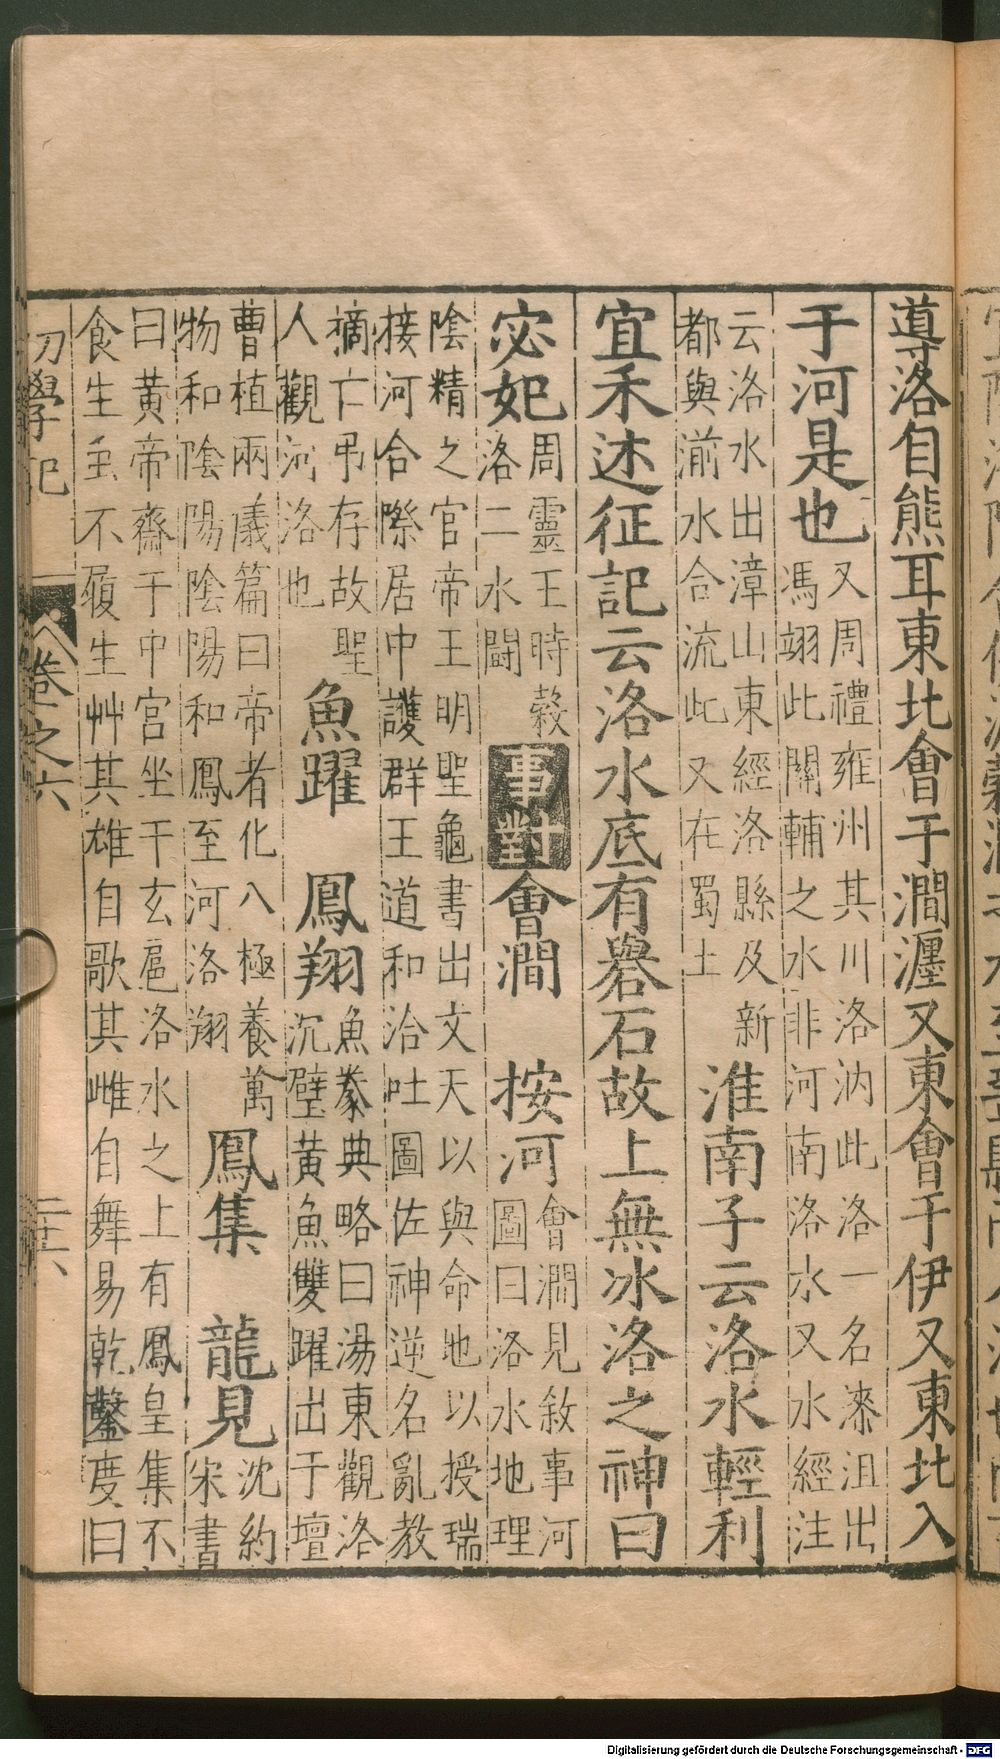 導洛自熊耳東北會于澗瀍又東會于伊又東北入
于河是也
又周禮雍州其川洛汭此洛一名漆沮出
馮翊北關輔之水非河南洛水又水經注
云洛水出漳山東經洛縣及新
都與湔水合流此又在蜀土
淮南子云洛水輕利
宜禾述征記云洛水底有礜石故上無冰洛之神曰
宓妃
周靈王時穀
洛二水鬭
事對
會澗 按河
會澗見敘事河
圖曰洛水地理
陰精之官帝王明聖龜書出文天以與命地以授瑞
接河合際居中護群王道和洽吐圖佐神逆名亂教
摘亡弔存故聖
人觀河洛也
魚躍 鳳翔
魚豢典略曰湯東觀洛
沉璧黃魚雙躍出于壇
曹植兩儀篇曰帝者化八極養萬
物和陰陽陰陽和鳳至河洛翔
鳳集 龍見
沈約
宋書
曰黃帝齋于中宮坐于玄扈洛水之上有鳳皇集不
食生䖝不履生艸其雄自歌其雌自舞易乾鑿度曰
初學記 卷之六 二十六
Digitalisierung gefördert durch die Deutsche Forschungsgemeinschaft - DFG